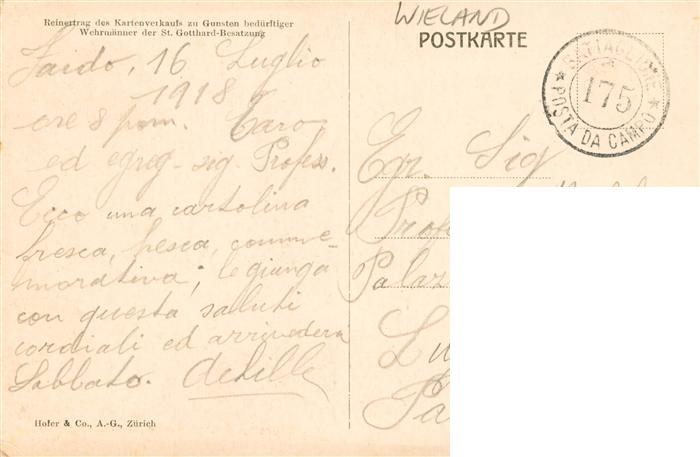 Reinertrag des Kartenverkaufs zu Gunsten bedürftiger
Wehrmänner der St. Gotthard-Besatzung
WIELAND
POSTKARTE
BATTAGLIONE
175
POSTA DA CAMPO
Faido, 16 Luglio
1918
ore 8 pom. Caro
ed egreg. sig. Profess.
Ecco una cartolina
fresca, fresca, comme-
morativa; le giunga
con questa saluti
cordiali ed arrivederci
Sabbato. Achille
Egr. Sig
Prof
Palaz
Lu
Hofer & Co., A.-G., Zürich